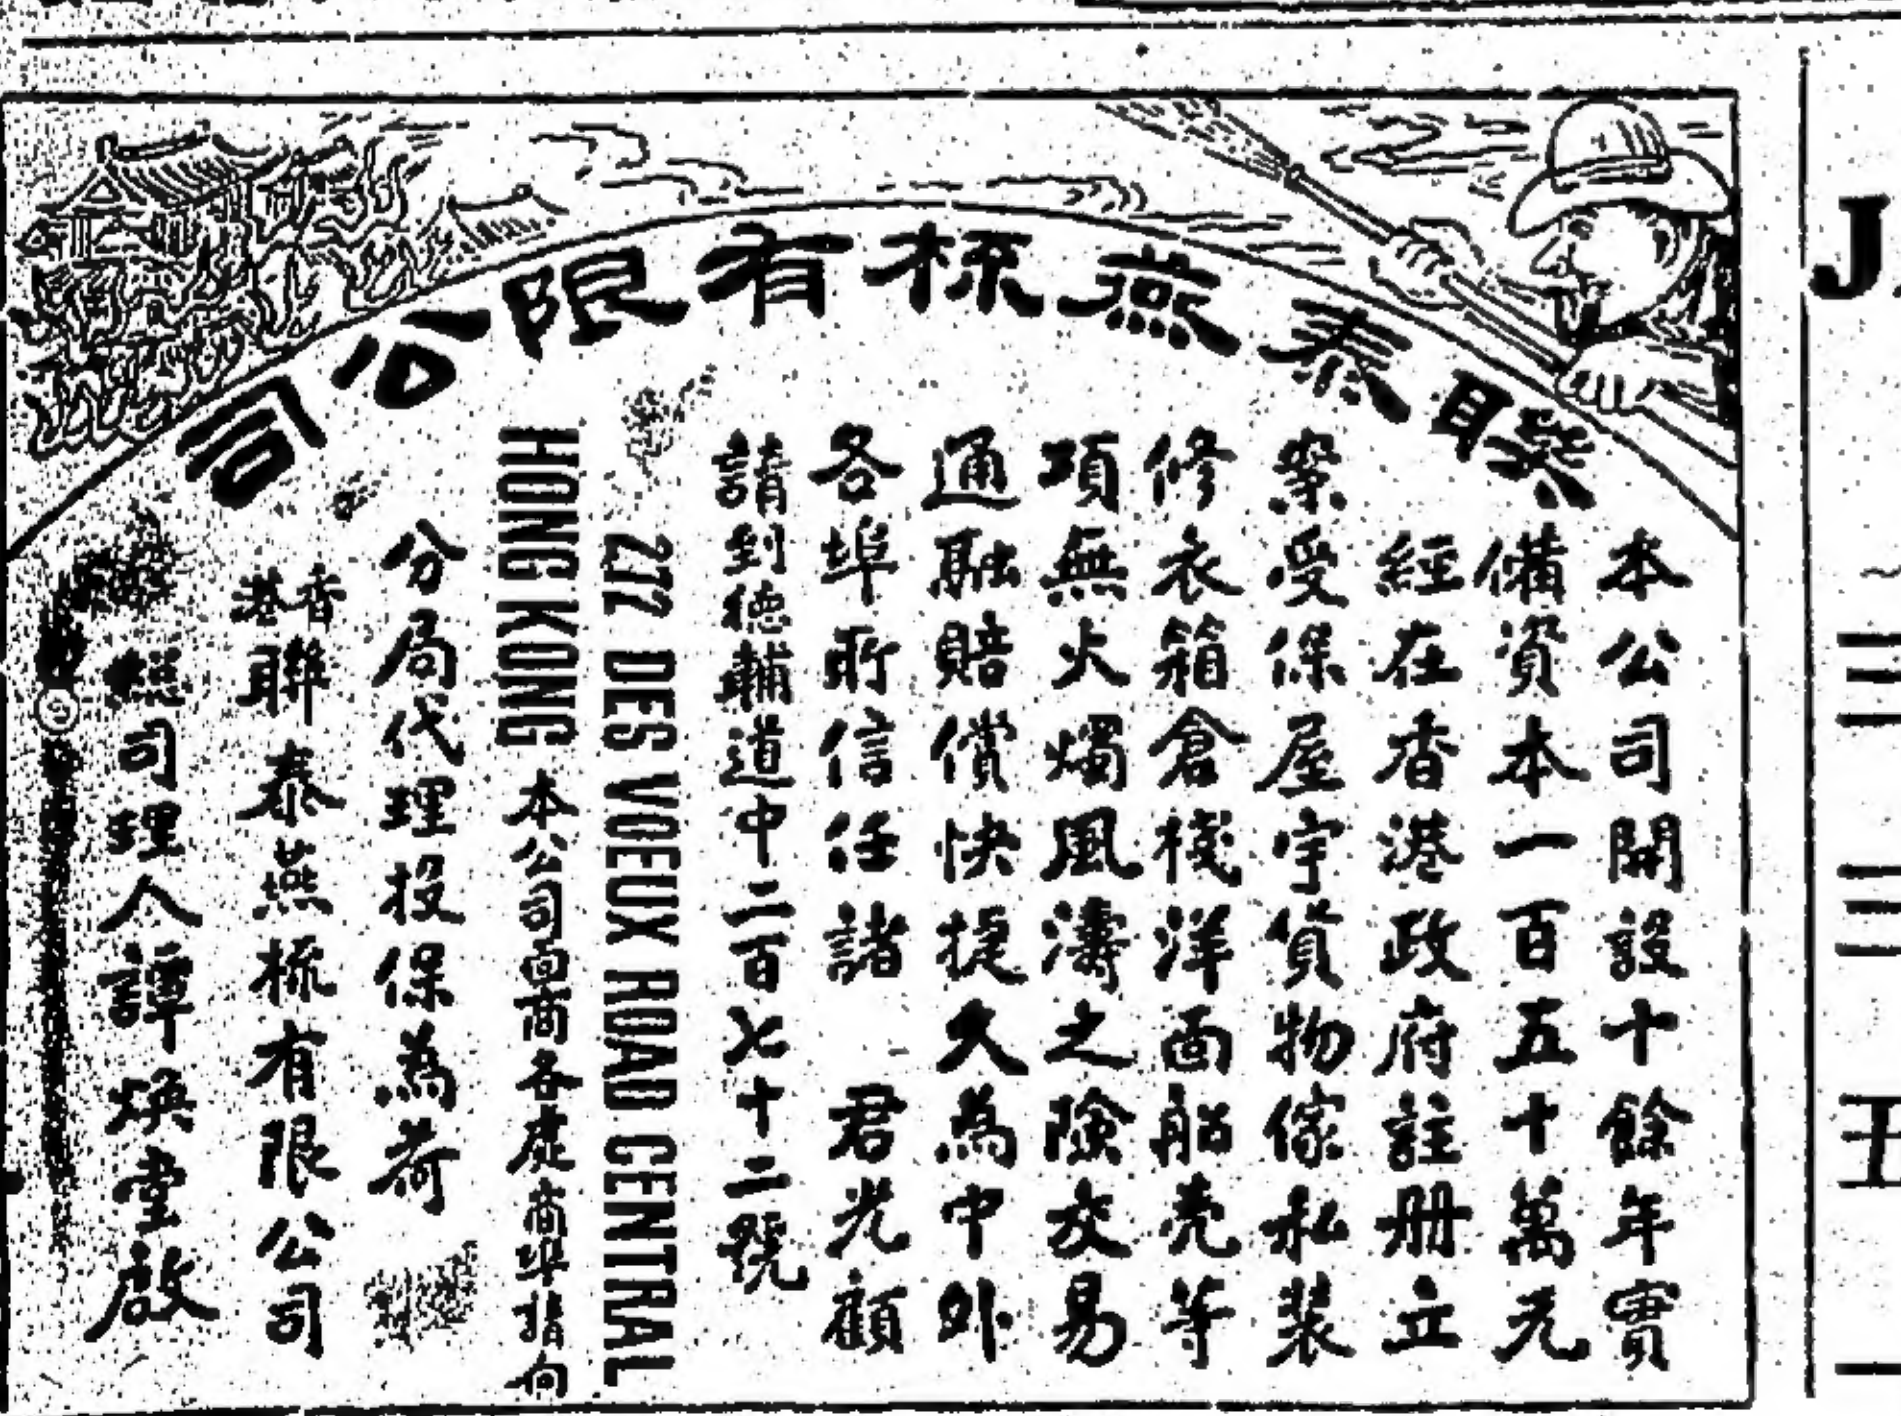 聯泰燕梳有限公司
本公司開設十餘年實
備資本一百五十萬元
經在香港政府註册立
案受保屋宇貨物傢私裝
修衣箱倉棧洋面船壳等
項無火燭風濤之險交易
通融賠償快捷久為中外
各埠所信任諸 君光顧
請到德輔道中二百七十二號
272 DES VOEUX ROAD CENTRAL
HONG KONG 本公司面商各處商埠指向
分局代理投保為荷
香港聯泰燕梳有限公司
司理人譚煥堂啟